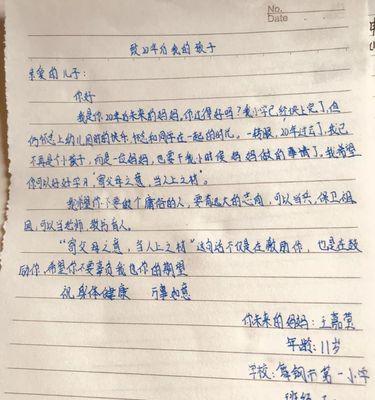 No.
Date
致20年后我的孩子
亲爱的儿子：
你好
我是你20年后未来的妈妈，你过得好吗？我小学已经快上完了，但
仍怀念上幼儿园时的快乐，怀念和同学在一起的时光。一转眼，20年过去了，我已
不再是个小孩子，而是一位妈妈，也要干我小时候妈妈做的事情了。我希望
你可以好好学习“寄父母之意，当人上之材”。
我希望你不要做个庸俗的人，要有远大的志向，可以当兵，保卫祖
国，可以当老师，教书育人。
“寄父母之意，当人上之材”这句话不仅是在教用你，也是在鼓
励你，希望你不要辜负我对你的期望
祝身体健康 万事如意
你未来的妈妈：王嘉
年龄：11岁
学校：舞钢市第一小学
班级：